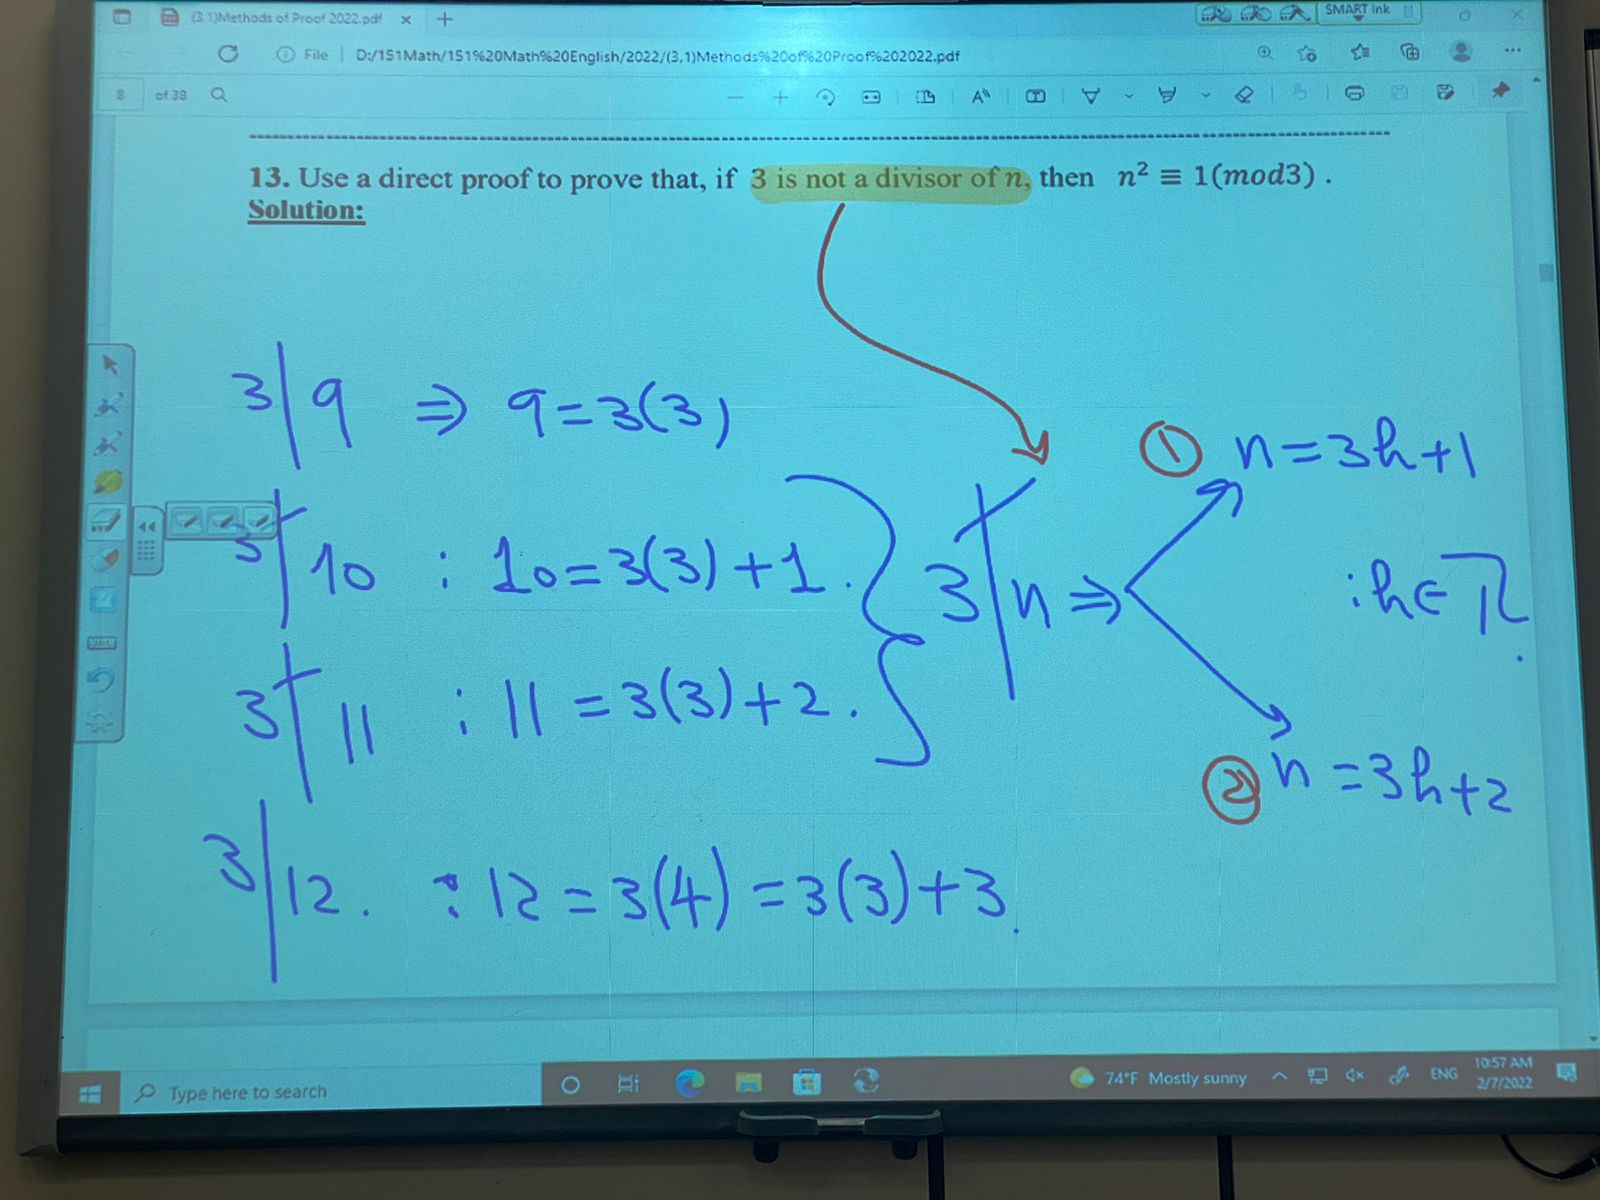 (3,1)Methods of Proof 2022.pdf
SMART Ink
File | D:/151Math/151%20Math%20English/2022/(3,1)Methods%20of%20Proof%202022.pdf
8 of 39
13. Use a direct proof to prove that, if 3 is not a divisor of n, then n² ≡ 1(mod3) .
Solution:
3 | 9 ⇒ 9 = 3(3)
3 ∤ 10 : 10 = 3(3) + 1.
3 ∤ 11 : 11 = 3(3) + 2.
3 | 12. : 12 = 3(4) = 3(3) + 3.
3 ∤ n ⇒
① n = 3h + 1
: h ∈ ℤ.
② n = 3h + 2
Type here to search
74°F Mostly sunny
ENG
10:57 AM
2/7/2022